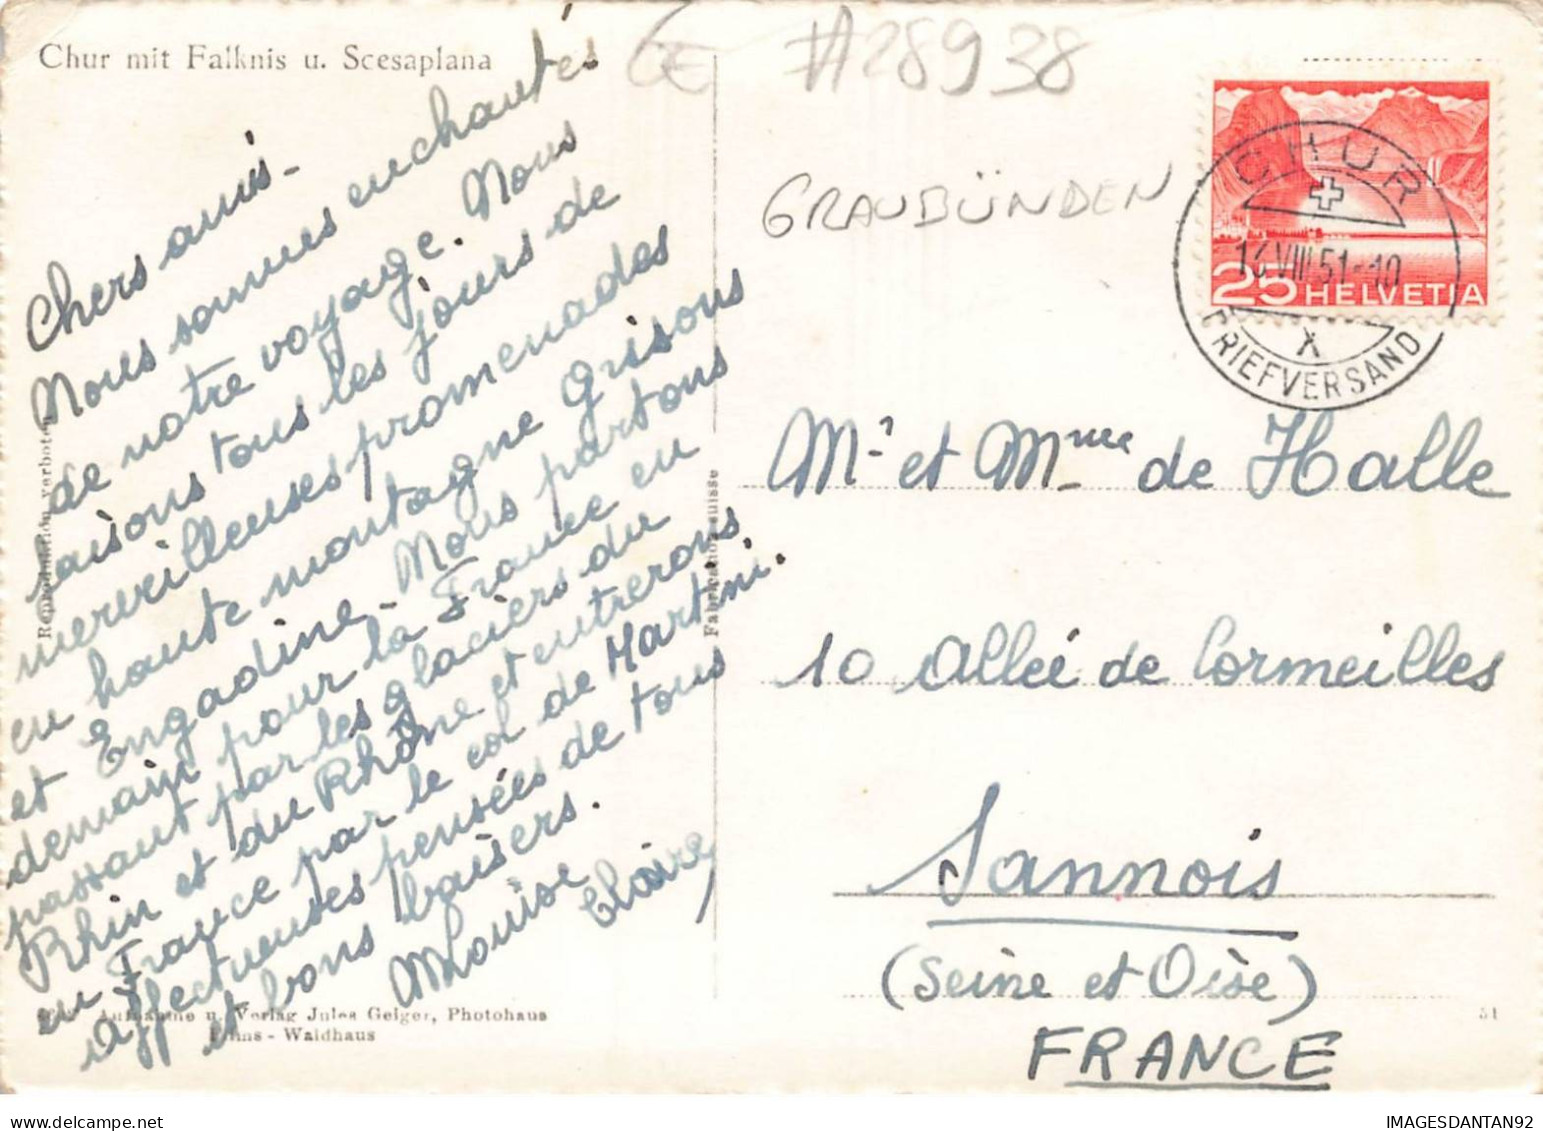 Chur mit Falknis u. Scesaplana
€ #28938
GRAUBÜNDEN
CHUR
VIII 51-10
X
BRIEFVERSAND
25 HELVETIA
Chers amis-
Nous sommes enchantés
de notre voyage. Nous
faisons tous les jours de
merveilleuses promenades
en haute montagne Grisons
et Engadine - Nous partons
demain pour la France en
passant par les glaciers du
Rhin et du Rhône et entrerons
en France par le col de Martini.
Affectueuses pensées de tous
et bons baisers.
Mlouise Claire
Reproduktion verboten
Fabrication suisse
Mr et Mme de Halle
10 Allée de Cormeilles
Sannois
(Seine et Oise)
FRANCE
Aufnahme u. Verlag Jules Geiger, Photohaus
Flims - Waldhaus
51
IMAGESDANTAN92